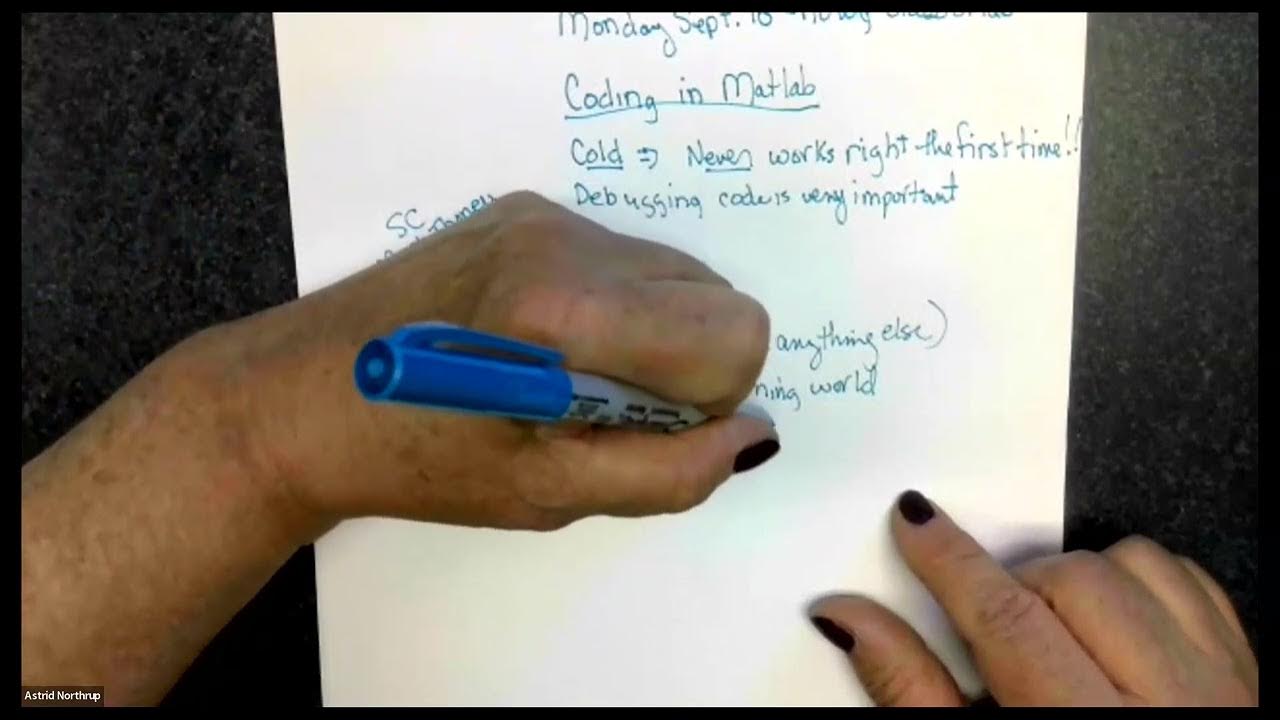 Monday Sept. 18
Coding in Matlab
Cold => Never works right the first time!!
Debugging code is very important
SC
anything else)
ning world
Astrid Northrup